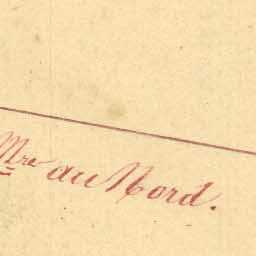 Mre au Nord.